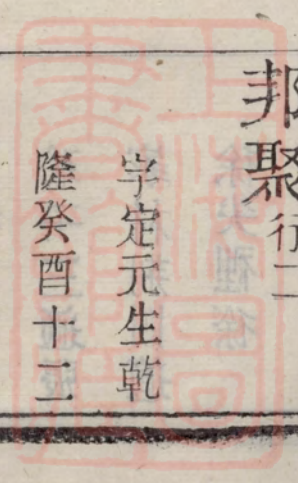 邦聚行二
字定元生乾
隆癸酉十二